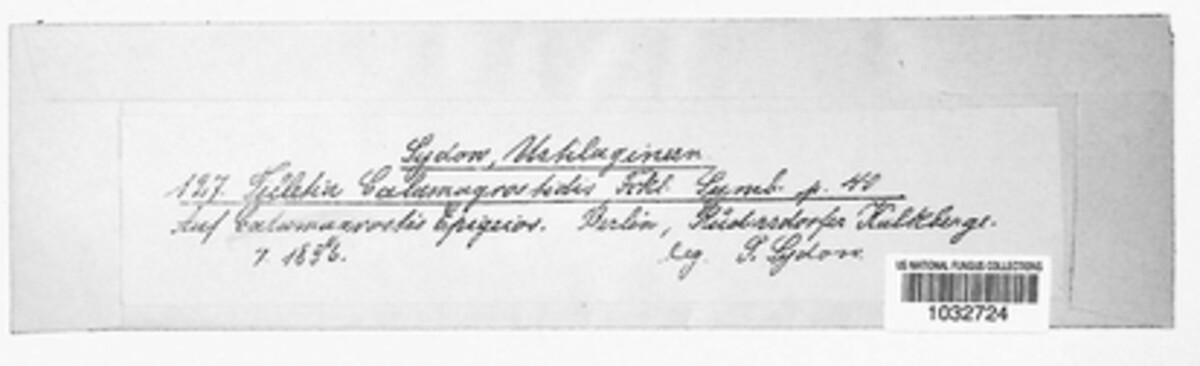 Sydow, Ustilagineen
127. Tilletia Calamagrostidis Fckl. Symb. p. 40
Auf Calamagrostis Epigeios. Berlin, Rüdersdorfer Kalkberge.
7. 1896. leg. P. Sydow.
US NATIONAL FUNGUS COLLECTIONS
1032724